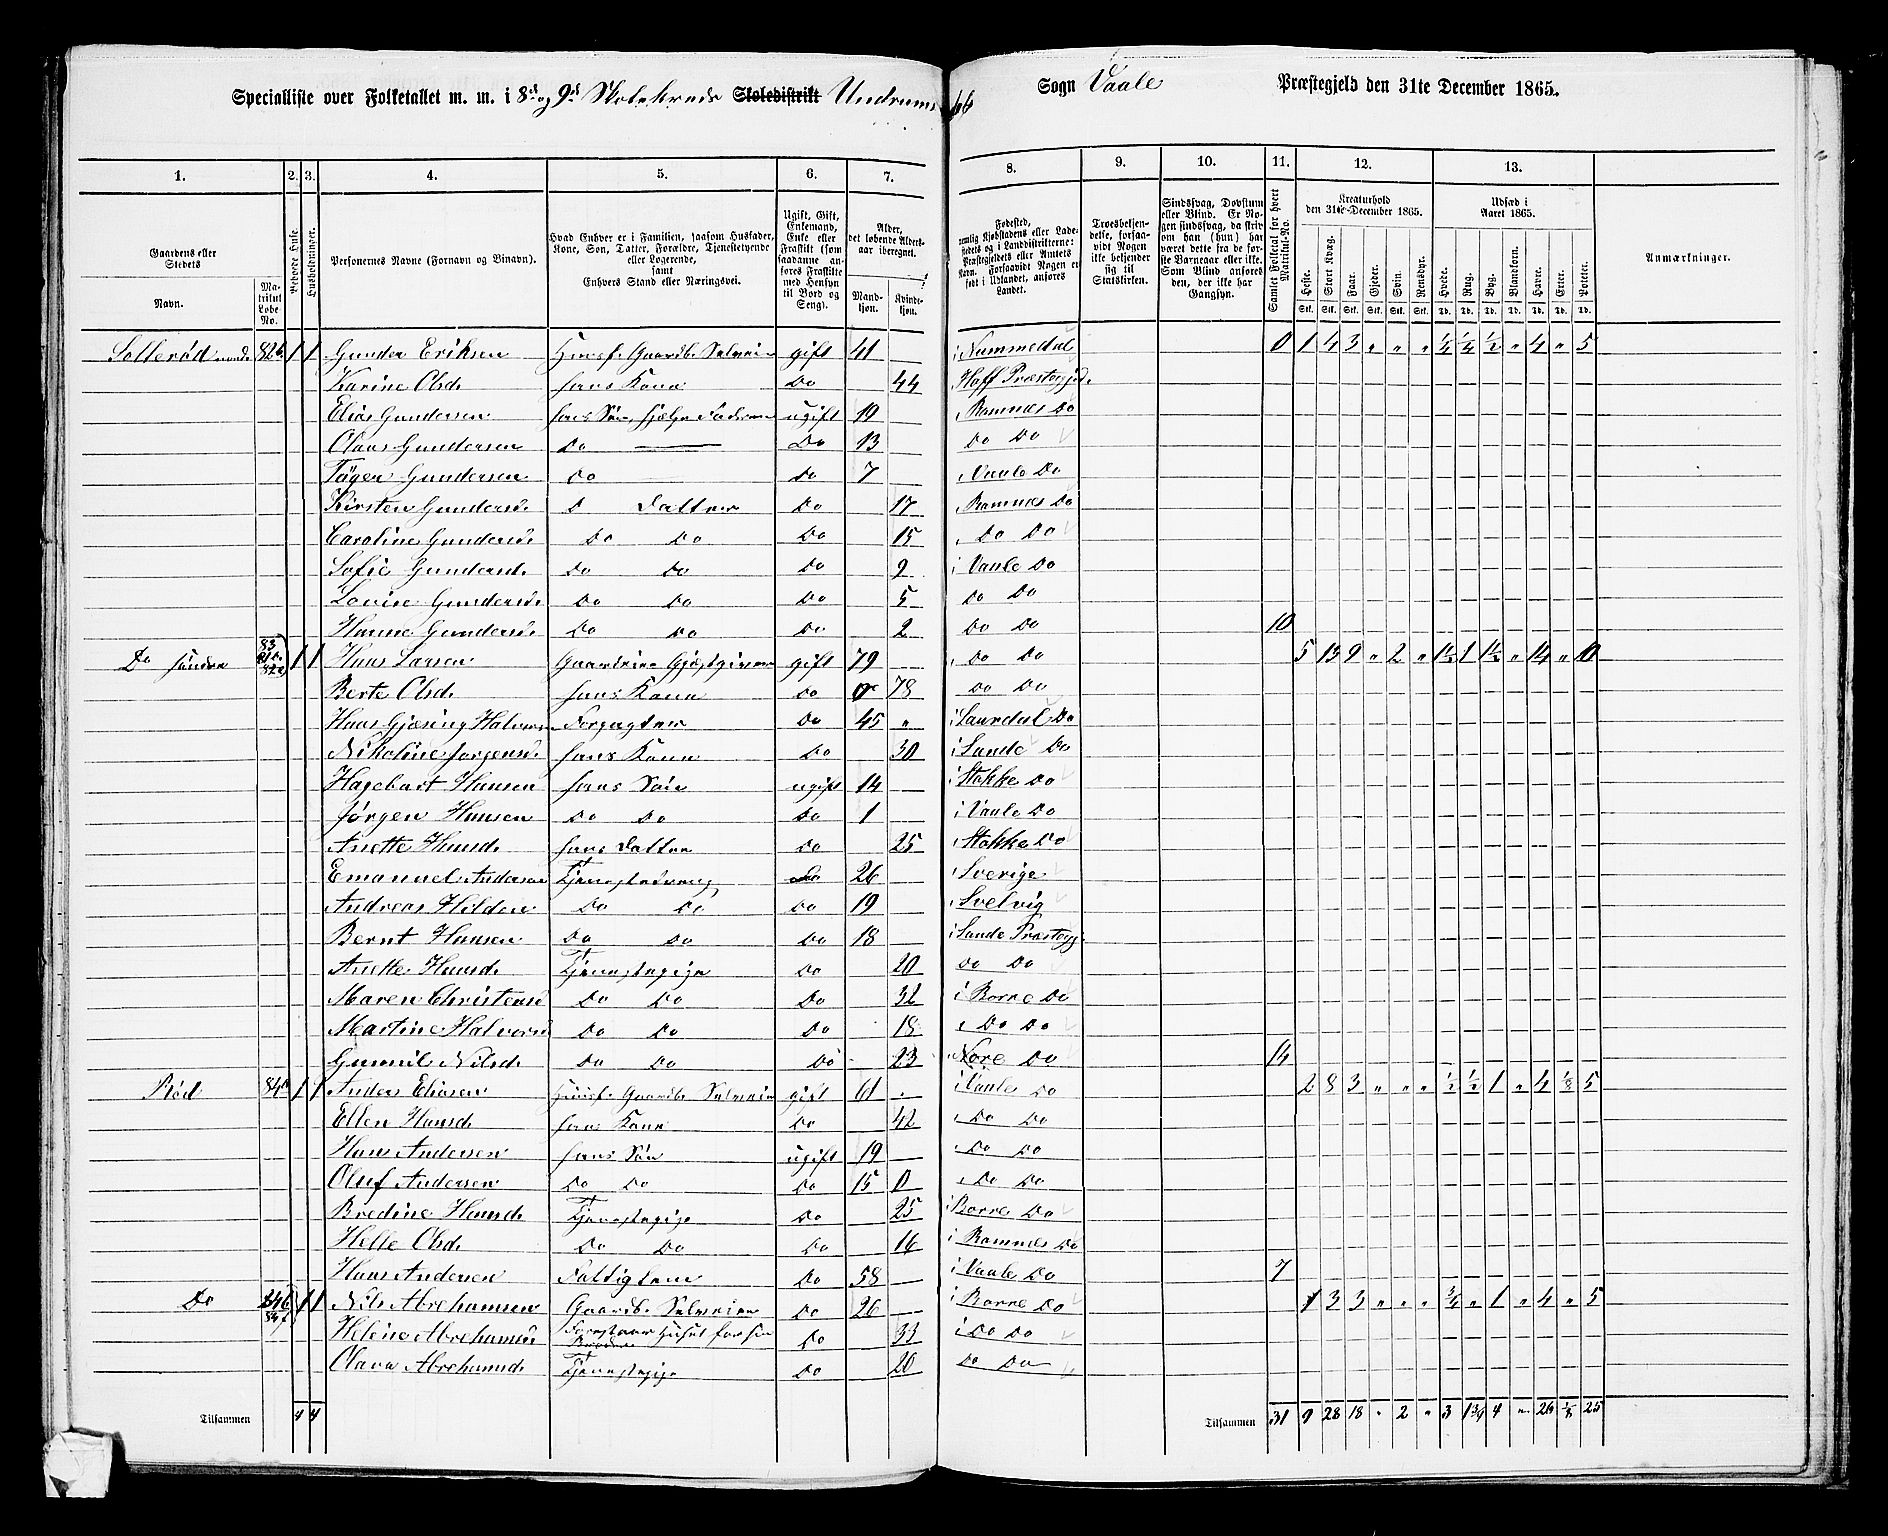 Specialliste over Folketallet m. m. i 8d og 9d Skolekreds Skoledistrikt Undrums Sogn Vaale Præstegjeld den 31te December 1865.
1. 2. 3. 4. 5. 6. 7. 8. 9. 10. 11. 12. 13.
Gaardens eller Stedets
Navn.
Matrikul Løbe No.
Beboede Huse.
Husholdninger.
Personernes Navne (Fornavn og Binavn).
Hvad Enhver er i Familien, saasom Husfader, Kone, Søn, Datter, Forældre, Tjenestetyende eller Logerende,
samt
Enhvers Stand eller Næringsvei.
Ugift, Gift, Enkemand, Enke eller Fraskilt (som saadanne anføres Fraskilte med Hensyn til Bord og Seng).
Alder, det løbende Aldersaar iberegnet.
Mandkjøn.
Kvindekjøn.
Fødested, nemlig Kjøbstadens eller Ladestedets og i Landdistrikterne: Præstegjeldets eller Amtets Navn. Forsaavidt Nogen er født i Udlandet, anføres Landet.
Troesbekjendelse, forsaavidt Nogen ikke bekjender sig til Statskirken.
Sindssvag, Døvstum eller Blind. Er Nogen sindssvag, da skriv om han (hun) har været dette fra de første Barneaar eller ikke. Som Blind anføres den, der ikke har Gangsyn.
Samlet Folketal for hvert Matrikul-No.
Kreaturhold den 31te December 1865.
Heste. Stort Kvæg. Faar. Gjeder. Svin. Rensdyr.
Udsæd i Aaret 1865.
Hvede. Rug. Byg. Blandkorn. Havre. Erter. Poteter.
Stk. Stk. Stk. Stk. Stk. Stk. Td. Td. Td. Td. Td. Td. Td.
Anmærkninger.
Solleröd nord. 82b 1 1 Gunder Eriksen Husf. Gaardb. Selveier gift 41 i Nummedal 0 1 4 3 " " " 1/4 1/4 1/2 " 4 " 5
Karine Olsd. hans Kone Do 44 Hoff Præstegjd.
Elias Gundersen hans Søn, hjelper Faderen ugift 19 i Ramnes Do
Claus Gundersen Do Do 13 Do Do
Gundersen Do Do 7 i Vaale Do
Kirsten Gundersd. D Datter Do 17 i Ramnes Do
Caroline Gundersd. Do Do Do 15 i Do Do
Sofie Gundersd. Do Do Do 9 i Vaale Do
Lovise Gundersd. Do Do Do 5 Do Do
Hanne Gundersd. Do Do Do 2 Do Do 10
Do søndre 83 82a 1 1 Hans Larsen Gaardeier Gjæstgiver gift 79 i Do Do 5 13 9 " 2 " 1 1/2 1 1 1/2 " 14 " 10
Berte Olsd. hans Kone Do 78 Do Do
Hans Gjøring Halvors Forpagter Do 45 " i Laurdal Do
Nikoline Jorgensd. hans Kone Do 30 i Sande Do
Hagebart Hansen hans Søn ugift 14 i Stokke Do
Jørgen Hansen Do Do Do 1 i Vaale Do
Anette Hansd. hans Datter Do 25 i Stokke Do
Emanuel Andersen Tjenestedreng Do 26 i Sverige
Andreas Hilden Do Do Do 19 i Svelvig
Bernt Hansen Do Do Do 18 i Sande Præstegj.
Anette Hansd. Tjenestepige Do 20 Do Do
Maren Christensd Do Do Do 32 i Borre Do
Martine Halvorsd Do Do Do 18 i Do Do
Gunnil Nilsd. Do Do Do 23 i Nore Do 14
Röd 84a 1 1 Anders Eliasen Husf. Gaardb. Selveier gift 61 i Vaale Do 2 8 3 " " " 1/2 1/2 1 " 4 1/8 5
Ellen Hansd. hans Kone Do 42 i Do Do
Hans Andersen hans Søn ugift 19 i Do Do
Oluf Andersen Do Do Do 15 0 i Do Do
Bredine Hansd. Tjenestepige Do 25 i Borre Do
Helle Olsd. Do Do Do 16 i Ramnes Do
Hans Andersen Fattiglem Do 58 i Vaale Do 7
Do 84b 1 1 Nils Abrehamsen Gaardb. Selveier Do 26 i Borre Do 1 3 3 " " " 3/4 " 1 " 4 " 5
Helene Abrehamsd Forestaaer Huset for sin Broder Do 33 i Do Do
Olava Abrehamsd. Tjenestepige Do 20 Do Do
Tilsammen 4 4 Tilsammen 31 9 28 18 " 2 " 3 1 3/4 4 " 26 1/8 25